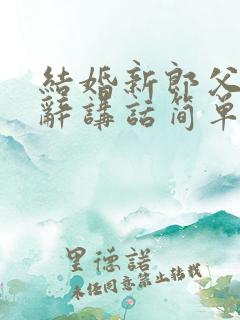 結婚新郎父
辭講話簡單
里德諾
未经同意禁止转载